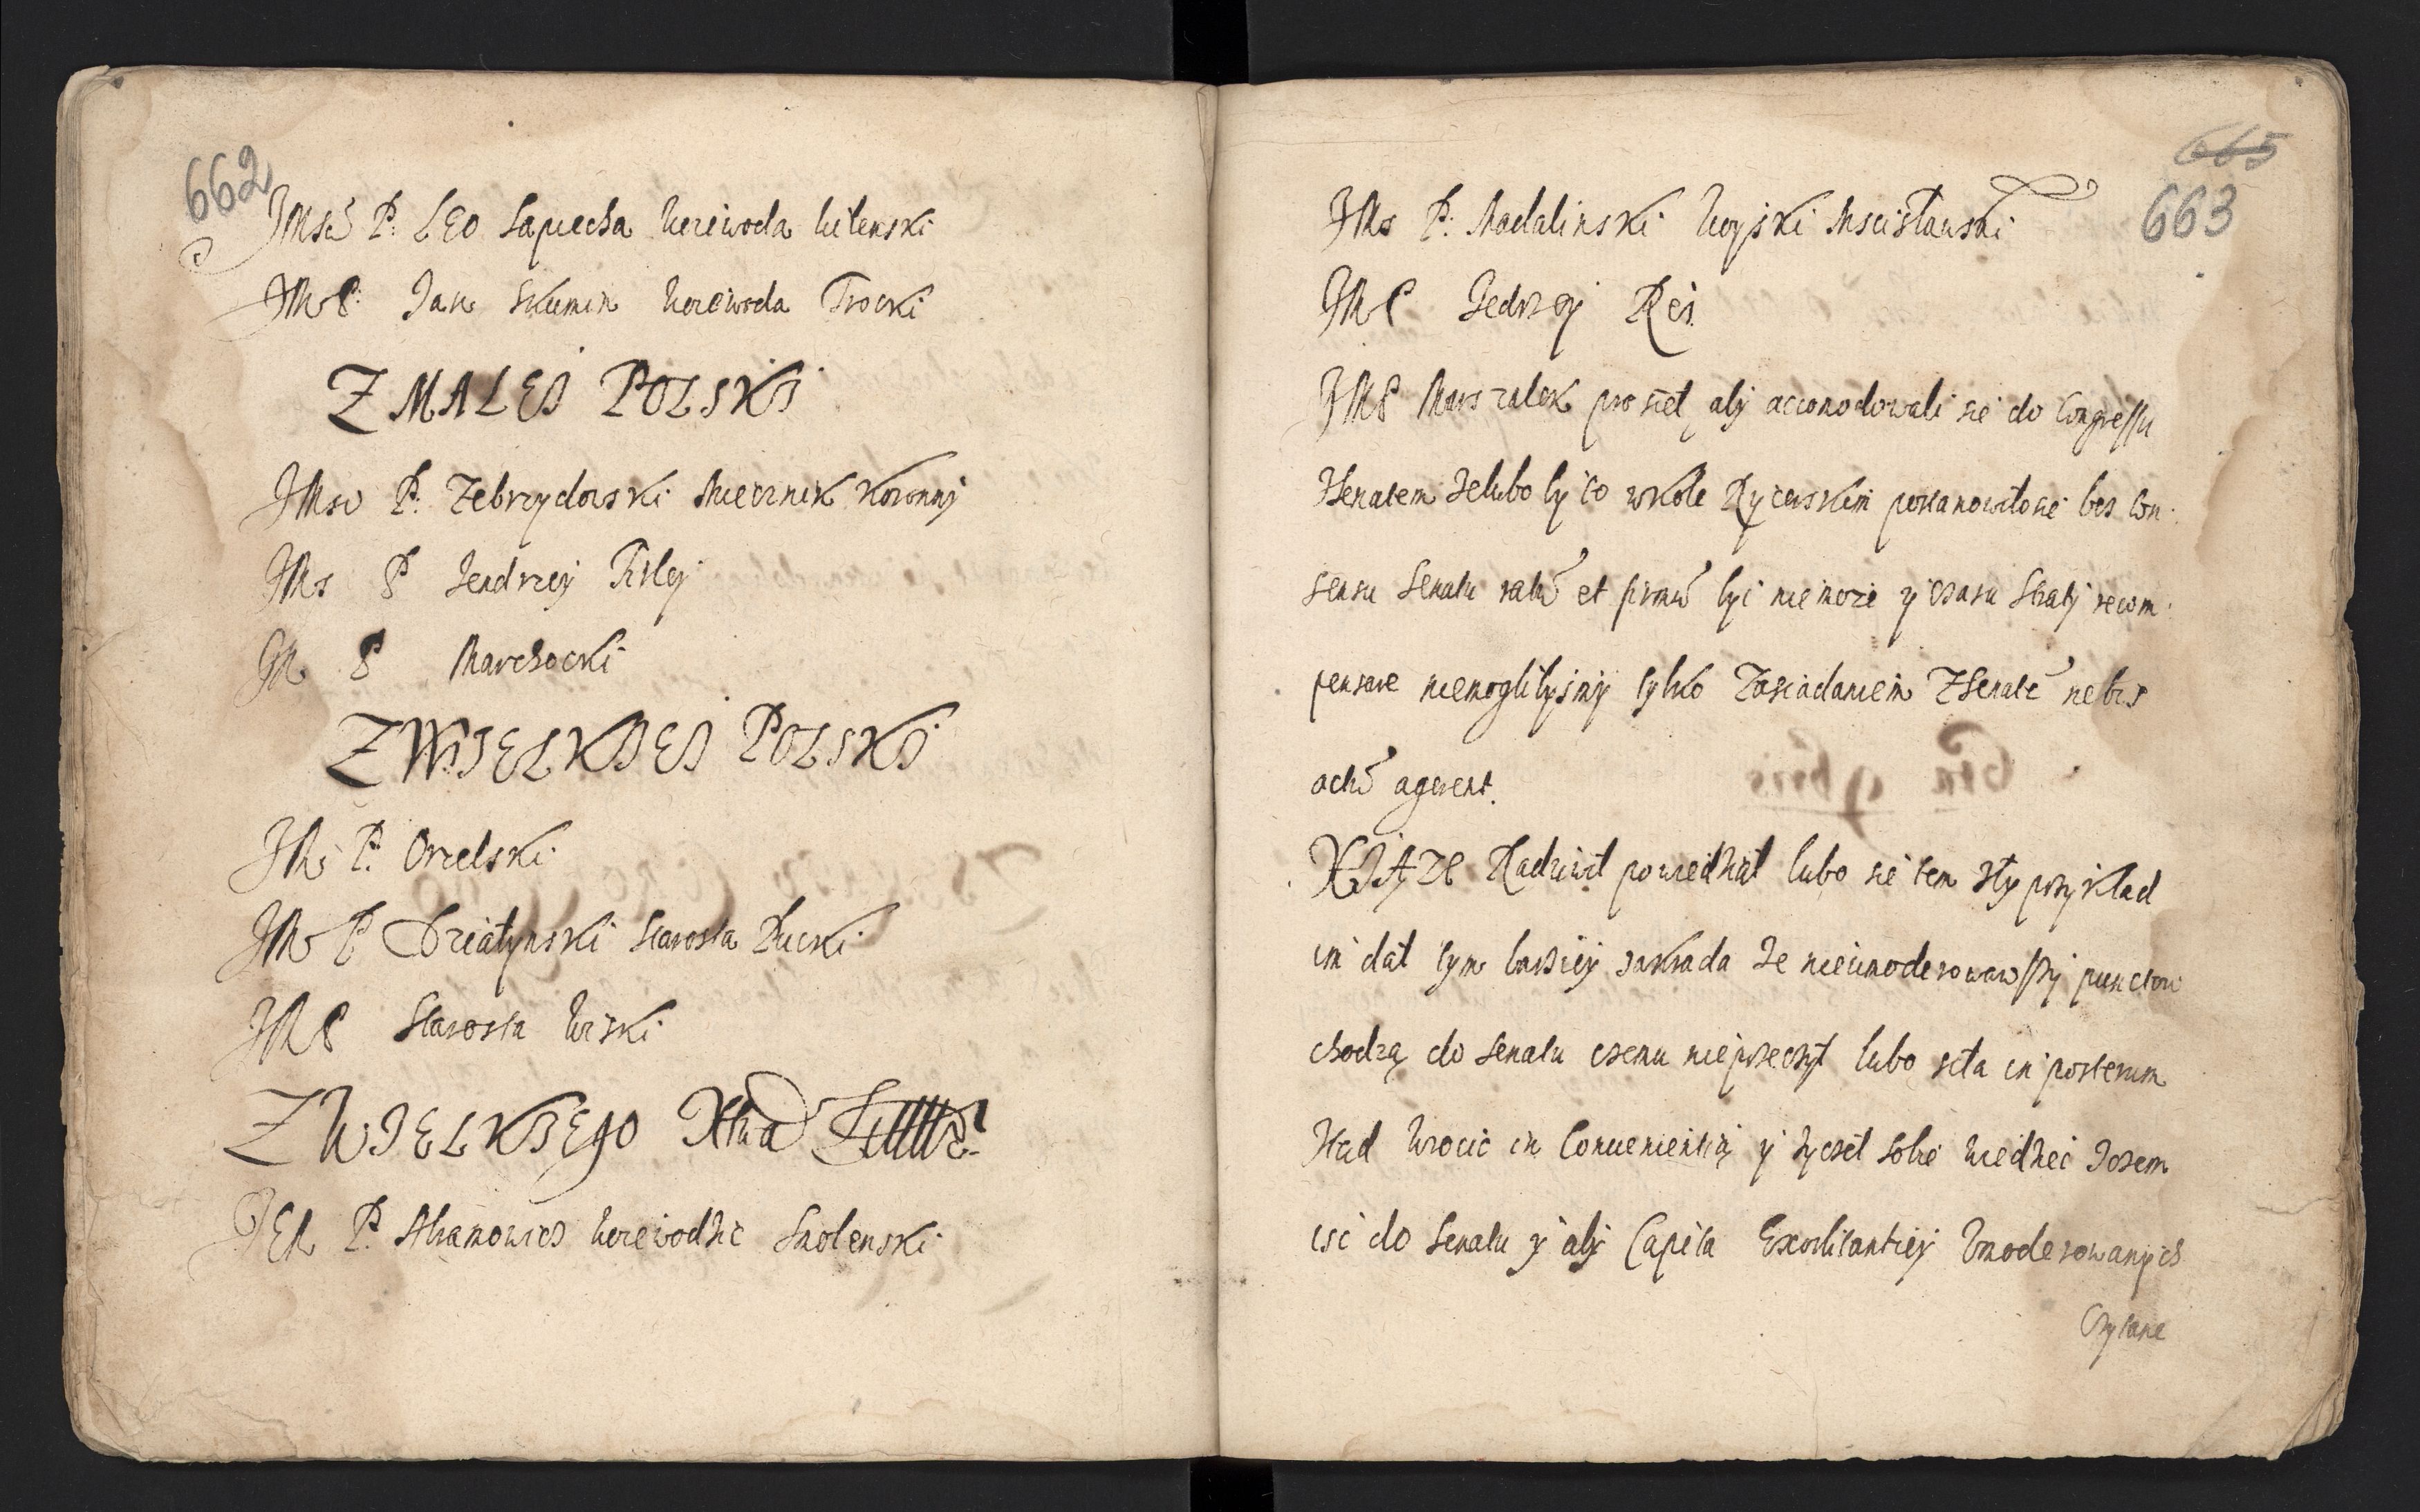 662
JMsć P. LEO Sapiecha Woiewoda Wilenski
JM P. Jan Skumin Woiewoda Trocki
Z MALEJ POLSKJ
JMsc P. Zebrzydowski Miecznik Koronny
JMs P Jendrzey Firley
JM P Marchocki
Z WJELKJEJ POLSKJ
JM P. Orzelski
JM P Działynski Starosta Pucki
JM P Starosta Wiski
Z WJELKJEgO Xtwa
JEM P. Abramowicz Woiewodzic Smolenski
665
663
JMs P. Madalinski Woyski Mscisławski
JM P Jedrzey Rei
JM P Marszalek prosieł aby accomodowali sie do Congressu
Zsenatem Zelubo by co wkole Rycerskim postanowiło sie bes Con
sensu Senatu ratũ et firmũ byc niemoze y czasu straty recom
pensare niemoglibysmy tylko Zasiadaniem ZSenatẽ
actũ agerent.
XJĄZE Radziwił powiedział lubo sie ten zły przykład
im dał tym barziey ze nieumoderowawszy punctow
chodzą do Senatu czemu nieprzeczył lubo in posterum
Wrocic in Convenientią y zyczeł sobie wiedziec Jozem
isc do Senatu y aby Capita Exorbitantiey Vmoderowanych
Czytane